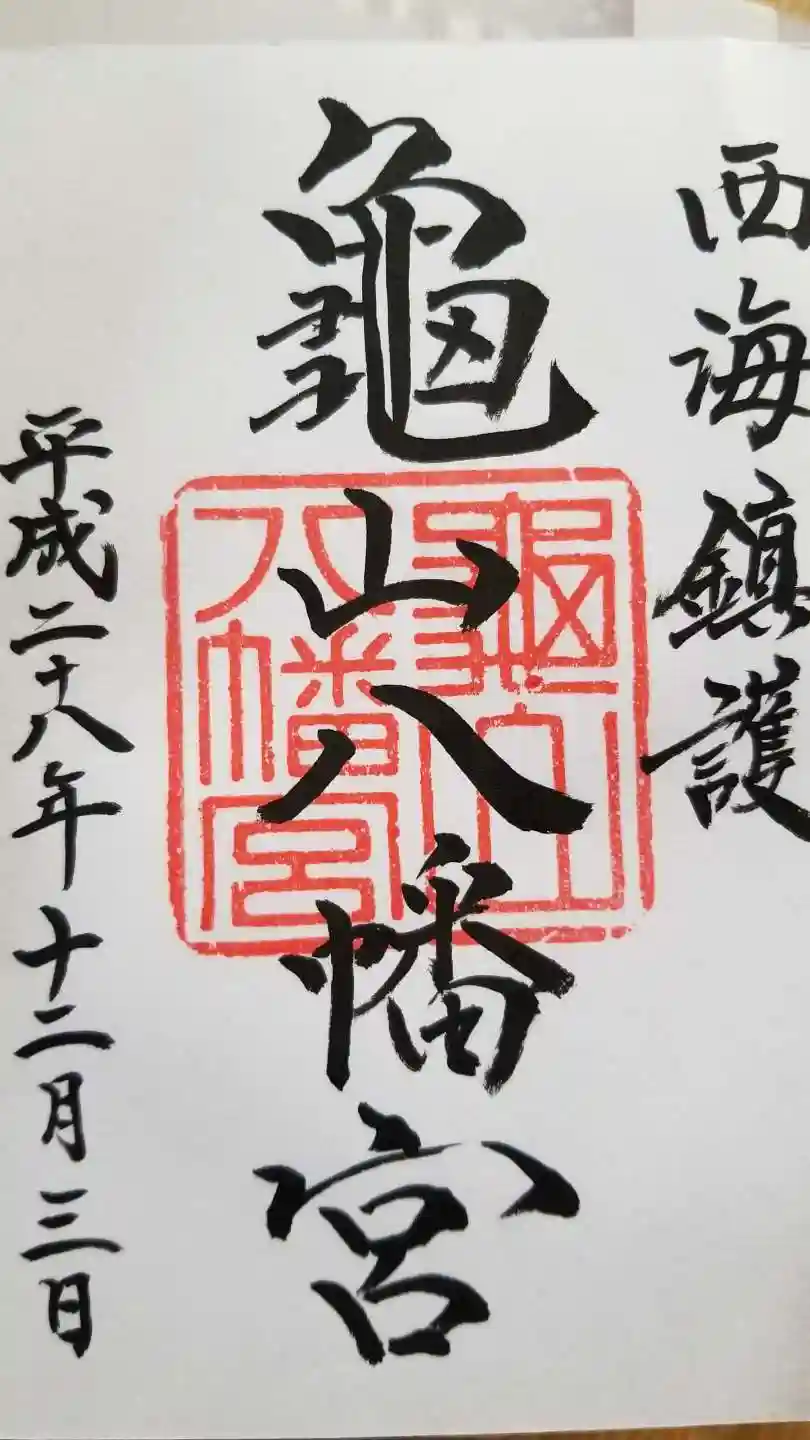 西海鎮護
龜山八幡宮
龜山
八幡宮
平成二十八年十二月三日